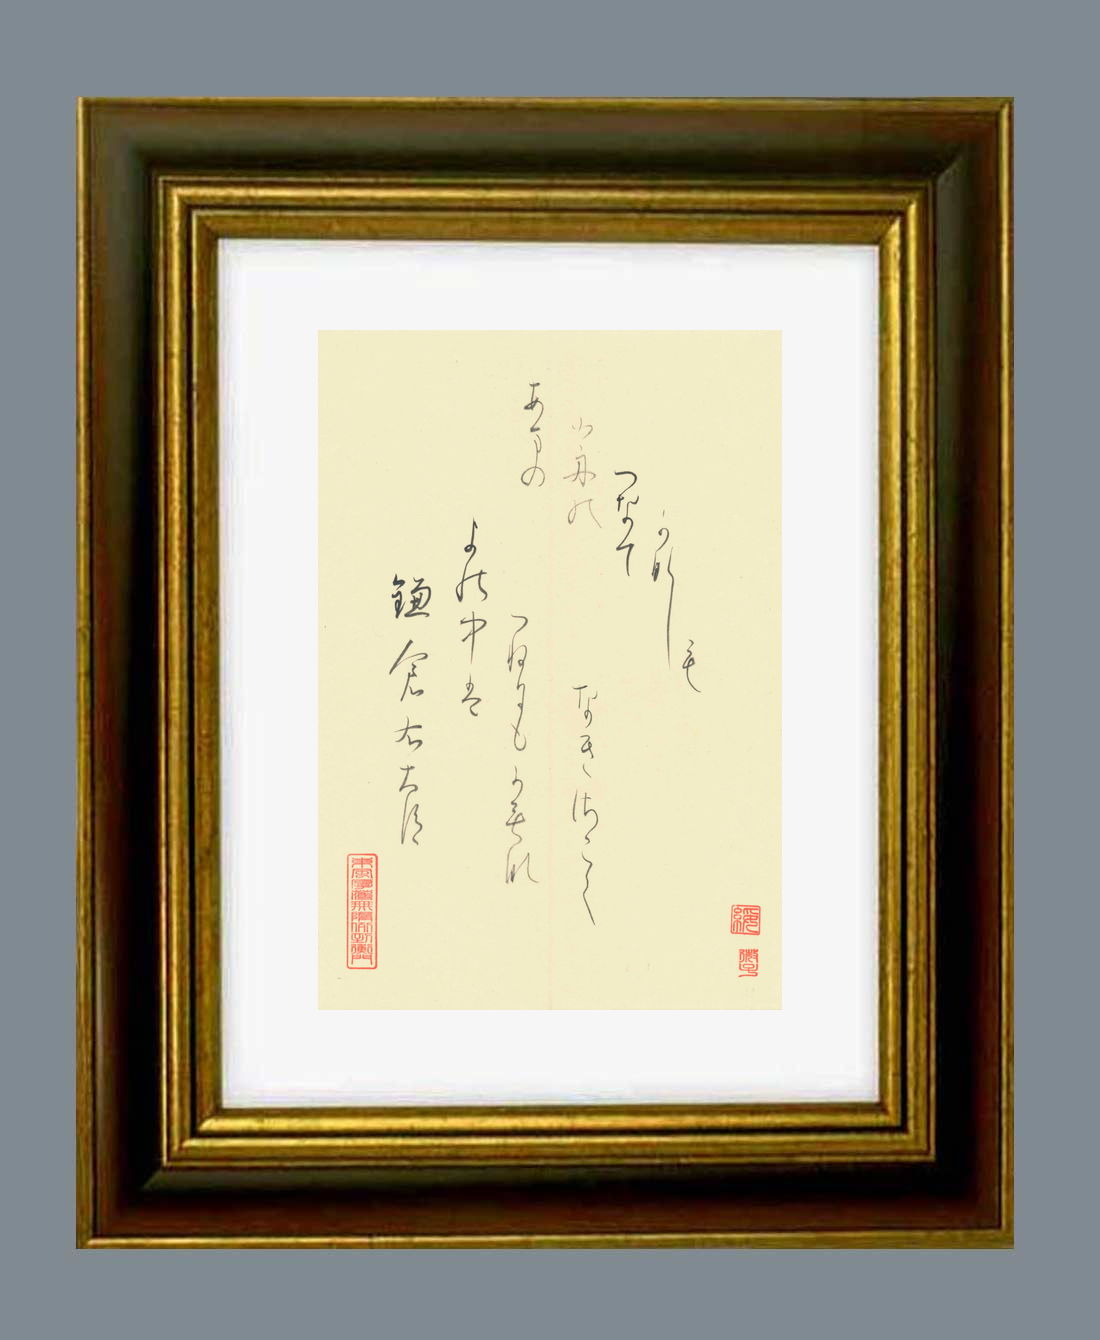 鎌倉右大臣
よの中は
つねにもかもな
なきさこく
あまの
小舟の
つなて
かなし
も